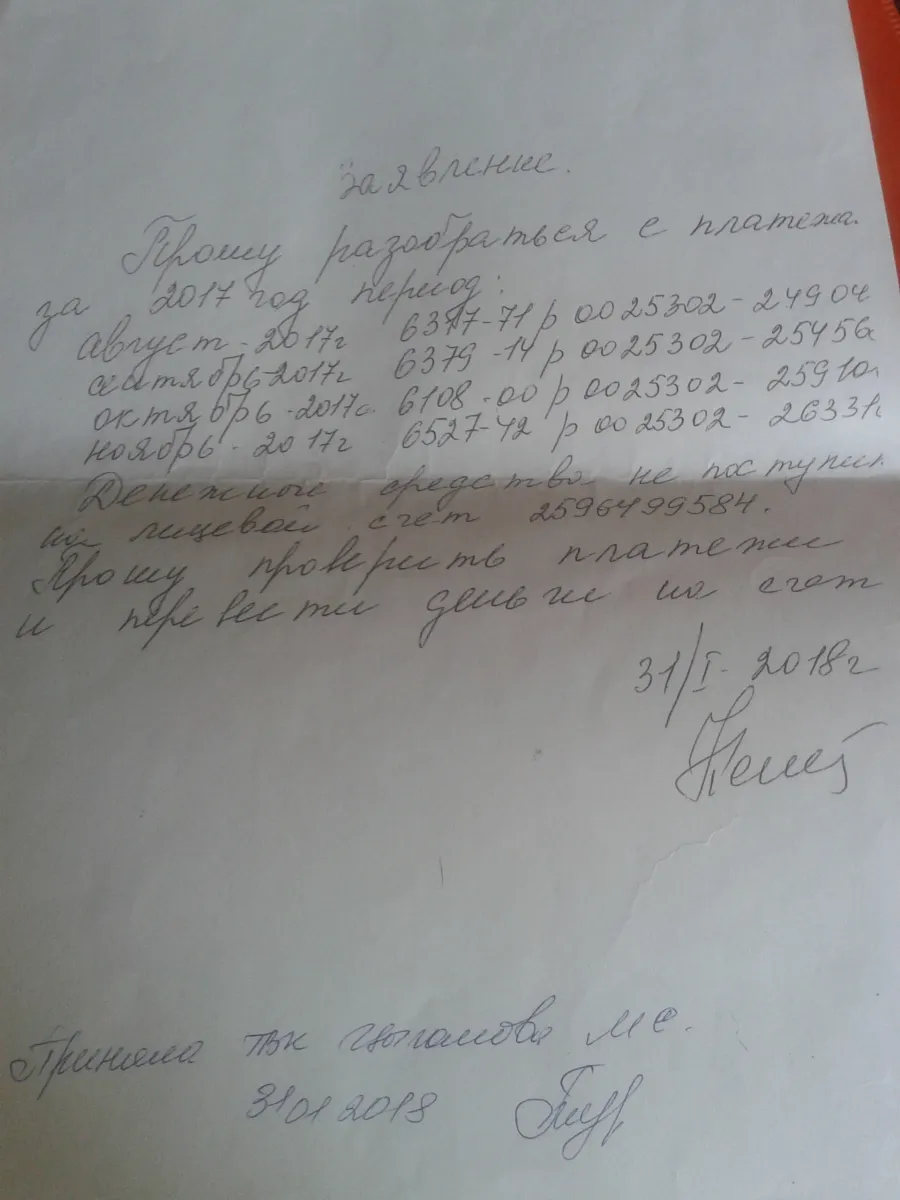 Заявление.
Прошу разобраться с платежа
за 2017 год период:
август - 2017г 6377-71 р 0025302 - 24904
сентябрь-2017г 6379-14 р 0025302 - 25456
октябрь-2017г. 6108-00 р 0025302 - 25910
ноябрь - 2017г 6527-42 р 0025302 - 26331
Денежные средства не поступил
на лицевой счет 2596499584.
Прошу проверить платежи
и перевести деньги на счет
31/I- 2018г
Приняла Цыганова М С.
31 01 2018